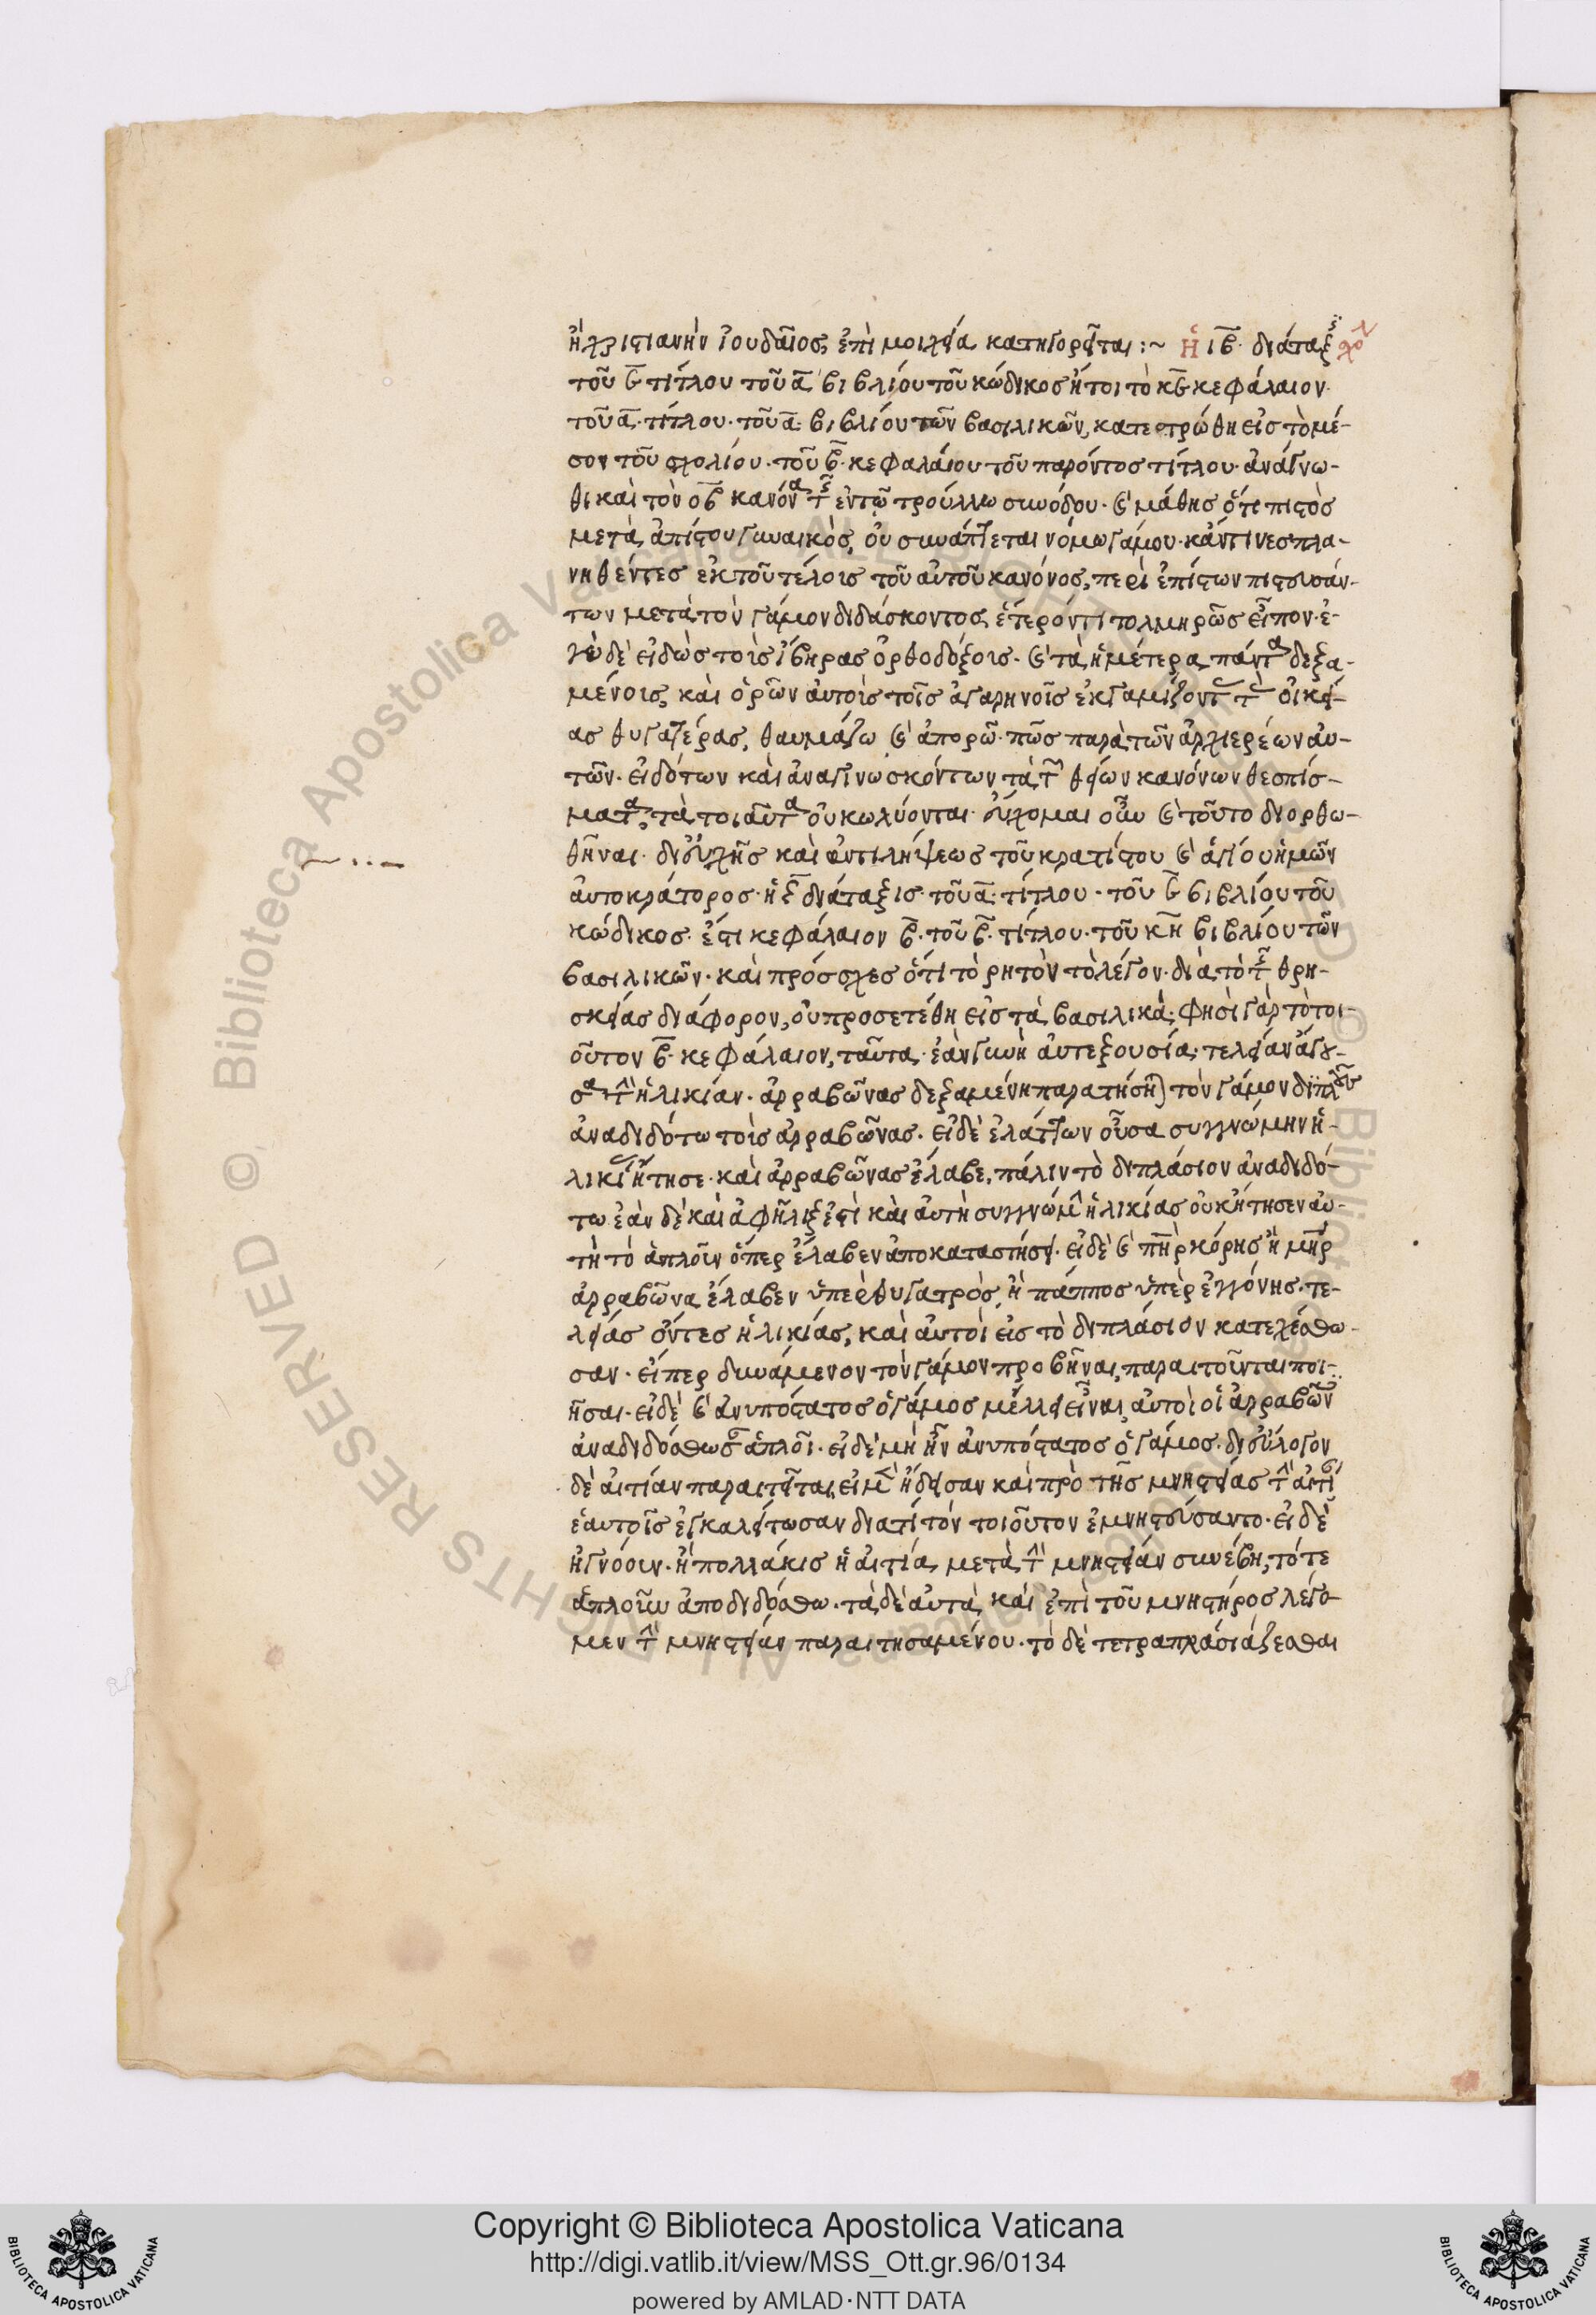 ἢ χριστιανὴν ἰουδαῖος, ἐπὶ μοιχεία κατηγορεῖται :~ Ἡ ιβ διάταξ
τοῦ γ τίτλου τοῦ α βιβλίου τοῦ κώδικος ἤτοι τὸ κγ κεφάλαιον
τοῦ α τίτλου τοῦ α βιβλίου τῶν βασιλικῶν, κατεστρώθη εἰς τὸ μέ-
σον τοῦ σχολίου τοῦ β κεφαλαίου τοῦ παρόντος τίτλου ἀνάγνω-
θι καὶ τὸν οβ κανόνα τῆς ἐν τῶ τρούλλω συνόδου καὶ μάθης ὅτι πιστὸς
μετὰ ἀπίστου γυναικὸς, οὐ συνάπτεται νόμω γάμου κἄν τινες πλα-
νηθέντες ἐκ τοῦ τέλους τοῦ αὐτοῦ κανόνος, περὶ ἀπίστων πιστευσάν-
των μετὰ τὸν γάμον διδάσκοντος ἕτερόν τι τολμηρῶς εἶπον ἐ-
γὼ δὲ εἰδὼς τοὺς ἴβηρας ὀρθοδόξους καὶ τὰ ἡμέτερα πάντα δεξα-
μένους, καὶ ὁρῶν αὐτοὺς τοῖς ἀγαρηνοῖς ἐκγαμίζοντας τὰς οἰκεί-
ας θυγατέρας, θαυμάζω καὶ ἀπορῶ πῶς παρὰ τῶν ἀρχιερέων αὐ-
τῶν εἰδότων καὶ ἀναγινωσκόντων τὰ τῶν θείων κανόνων θεσπίσ-
ματα, τὰ τοιαῦτα οὐ κωλύονται εὔχομαι οὖν καὶ τοῦτο διορθω-
θῆναι δι' εὐχῆς καὶ ἀντιλήψεως τοῦ κρατίστου καὶ ἁγίου ἡμῶν
αὐτοκράτορος ἡ ε διάταξις τοῦ α τίτλου τοῦ ε βιβλίου τοῦ
κώδικος ἐστι κεφάλαιον β τοῦ β τίτλου τοῦ κη βιβλίου τῶν
βασιλικῶν καὶ πρόσσχες ὅτι τὸ ρητὸν τὸ λέγον διὰ τὸ τῆς θρη-
σκείας διάφορον, οὐ προσετέθη εἰς τὰ βασιλικά φησὶ γὰρ τὸ τοι-
οῦτον β κεφάλαιον, ταῦτα ἐὰν γυνὴ αὐτεξουσία τελείαν ἄγου-
σα τὴν ἡλικίαν ἀρραβῶνας δεξαμένη παρατήσηται τὸν γάμον διπλοῦς
ἀναδιδότω τοὺς ἀρραβῶνας εἰ δὲ ἐλάττων οὖσα συγγνώμην ἡ-
λικίας ἤτησε καὶ ἀρραβῶνας ἔλαβε, πάλιν τὸ διπλάσιον ἀναδιδό-
τω ἐὰν δὲ καὶ ἀφῆλιξ ἐστὶ καὶ αὐτὴ συγγνώμην ἡλικίας οὐκ ἤτησεν αὐ-
τὴ τὸ ἁπλοῦν ὅπερ ἔλαβεν ἀποκαταστήσει εἰ δὲ καὶ πηρ κόρης ἢ μηρ
ἀρραβῶνα ἔλαβεν ὑπὲρ θυγατρὸς, ἢ πάππος ὑπὲρ ἐγγόνης τε-
λείας ὄντες ἡλικίας, καὶ αὐτοὶ εἰς τὸ διπλάσιον κατεχέσθω-
σαν εἴπερ δυνάμενον τὸν γάμον προβῆναι, παραιτοῦνται ποι-
ῆσαι εἰ δὲ καὶ ἀνυπόστατος ὁ γάμος μέλλει εἶναι, αὐτοὶ οἱ ἀρραβῶν
ἀναδιδόσθωσαν ἁπλοῖ εἰ δὲ μὴ ἦν ἀνυπόστατος ὁ γάμος δι' εὔλογον
δὲ αἰτίαν παραιτεῖται, εἰ μὲν ἤδεισαν καὶ πρὸ τῆς μνηστείας τὴν αἰτίαν
ἑαυτοῖς ἐγκαλείτωσαν διατί τὸν τοιοῦτον ἐμνηστεύσαντο εἰ δὲ
ἠγνόουν ἢ πολλάκις ἡ αἰτία μετὰ τὴν μνηστείαν συνέβη, τότε
ἁπλοῦν ἀποδιδόσθω τὰ δὲ αὐτὰ καὶ ἐπὶ τοῦ μνηστῆρος λέγο-
μεν τὴν μνηστείαν παραιτησαμένου τὸ δὲ τετραπλασιάζεσθαι
Copyright © Biblioteca Apostolica Vaticana
http://digi.vatlib.it/view/MSS_Ott.gr.96/0134
powered by AMLAD·NTT DATA